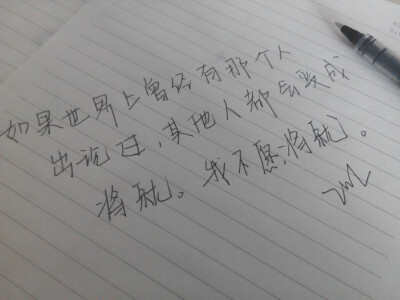 如果世界上曾经有那个人
出现过，其他人都会变成
将就。我不愿将就。